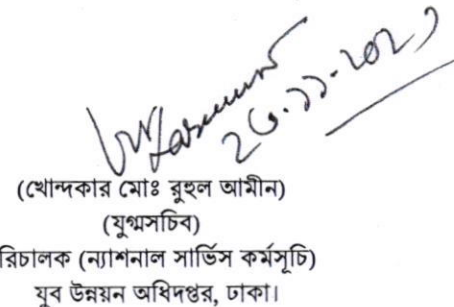 (খোন্দকার মোঃ রুহুল আমীন)
(যুগ্মসচিব)
রিচালক (ন্যাশনাল সার্ভিস কর্মসূচি)
যুব উন্নয়ন অধিদপ্তর, ঢাকা।